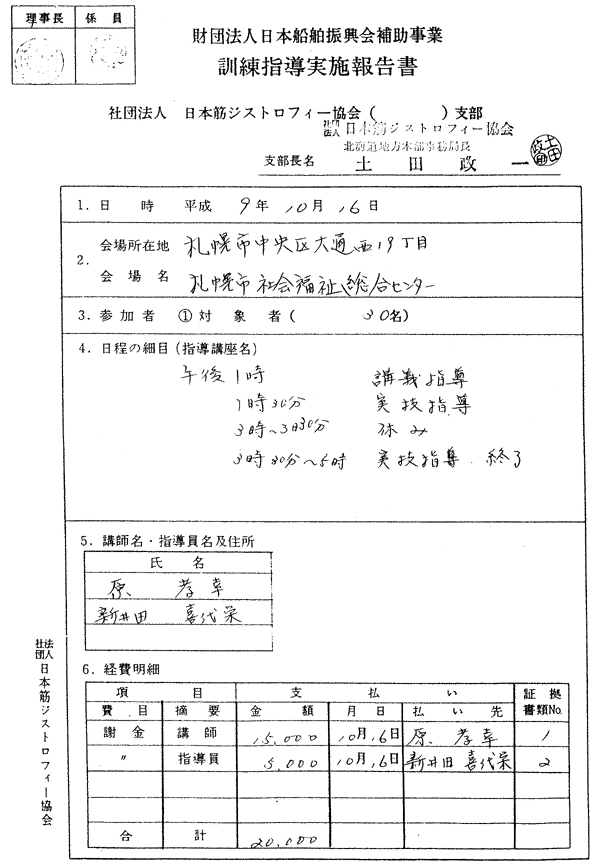 理事長 係員
財団法人日本船舶振興会補助事業
訓練指導実施報告書
社団法人 日本筋ジストロフィー協会( )支部
社団法人 日本筋ジストロフィー協会
北海道地方本部事務局長
支部長名 土田政一
1. 日 時 平成 9年 10月 16日
2. 会場所在地 札幌市中央区大通西19丁目
会場名 札幌市社会福祉総合センター
3. 参加者 ①対象者( 30名)
4. 日程の細目(指導講座名)
午後1時 講義指導
1時30分 実技指導
3時~3時30分 休み
3時30分~5時 実技指導 終了
5. 講師名・指導員名及住所
氏 名
原 孝幸
新井田 喜代栄
6. 経費明細
項 目 支 払 い 証拠書類No.
費目 摘要 金額 月日 払い先
謝金 講師 15,000 10月16日 原 孝幸 1
〃 指導員 5,000 10月16日 新井田 喜代栄 2
合 計 20,000
社団法人 日本筋ジストロフィー協会